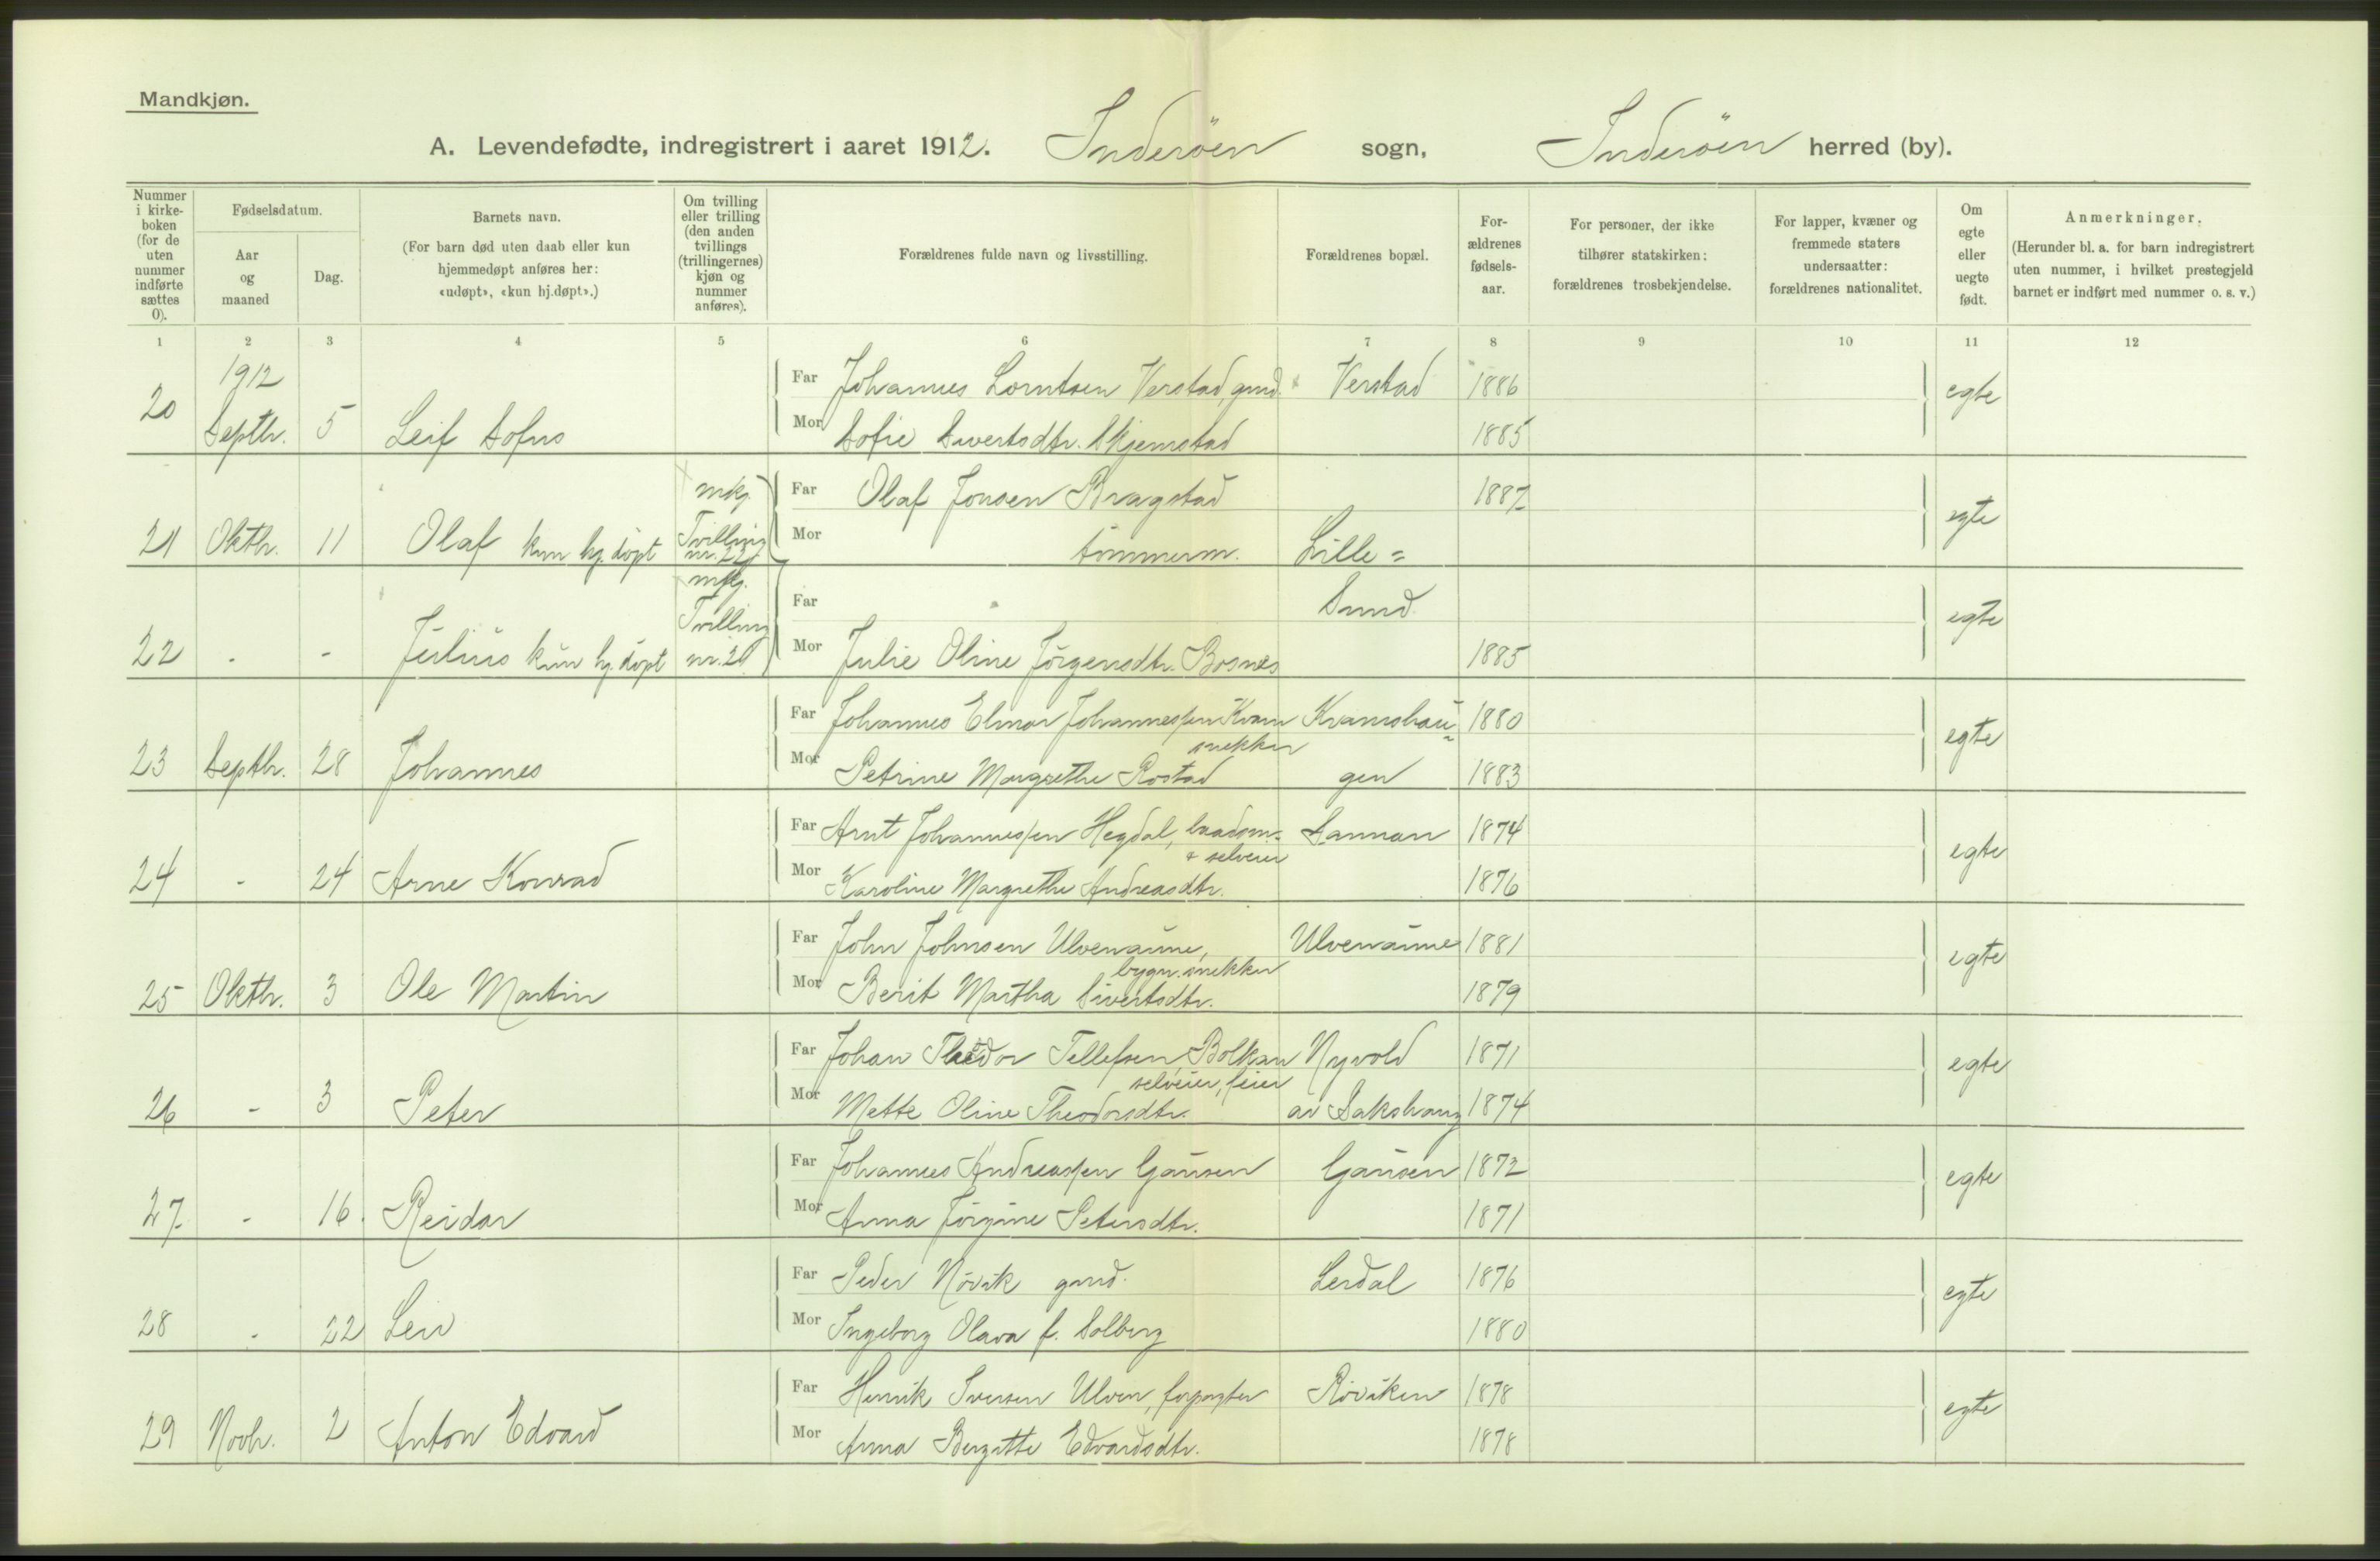 Mandkjøn.
A. Levendefødte, indregistrert i aaret 1912. Inderöen sogn, Inderöen herred (by).
Nummer i kirkeboken (for de uten nummer indførte sættes 0).
Fødselsdatum.
Aar og maaned
Dag.
Barnets navn.
(For barn død uten daab eller kun hjemmedøpt anføres her: «udøpt», «kun hj.døpt».)
Om tvilling eller trilling (den anden tvillings (trillingernes) kjøn og nummer anføres).
Forældrenes fulde navn og livsstilling.
Forældrenes bopæl.
Forældrenes fødselsaar.
For personer, der ikke tilhører statskirken: forældrenes trosbekjendelse.
For lapper, kvæner og fremmede staters undersaatter: forældrenes nationalitet.
Om egte eller uegte født.
Anmerkninger.
(Herunder bl. a. for barn indregistrert uten nummer, i hvilket prestegjeld barnet er indført med nummer o. s. v.)
1 2 3 4 5 6 7 8 9 10 11 12
1912
Far Johannes Lorntsen Verstad, gmd. Verstad 1886
20 Septbr. 5 Leif Sofus egte
Mor Sofie Sivertsdtr. Skjemstad 1885
mkj. Far Olaf Jonsen Bragstad 1887
21 Oktbr. 11 Olaf kun hj. döpt Tvilling nr. 22 egte
Mor tömmerm. Lille=
mkj. Far Sund
22 - - Julius kun hj. döpt Tvilling nr. 21 egte
Mor Julie Oline Jörgensdtr. Bosnes 1885
Far Johannes Elmar Johannessen Kvam Kvamshau= 1880
snekker
23 Septbr. 28 Johannes egte
Mor Petrine Margrethe Rostad gen 1883
Far Arnt Johannessen Hegdal, baadsm. Sannan 1874
& selveier
24 - 24 Arne Konrad egte
Mor Karoline Margrethe Andreasdtr. 1876
Far John Johnsen Ulvenaune, Ulvenaune 1881
bygn. snekker
25 Oktbr. 3 Ole Martin egte
Mor Berit Martha Sivertsdtr. 1879
Far Johan Theodor Tellefsen, Bolkan Nyvold 1871
selveier, feier
26 - 3 Peter egte
Mor Mette Oline Theodorsdtr. av Sakshaug 1874
Far Johannes Andreassen Gausen Gausen 1872
27 - 16. Reidar egte
Mor Anna Jörgine Petersdtr. 1871
Far Peder Növik gmd. Lerdal 1876
28 - 22 Leiv egte
Mor Ingeborg Olava f. Solberg 1880
Far Henrik Iversen Ulven, forpagter Röviken 1878
29 Novbr. 2 Anton Edvard egte
Mor Anna Bergitte Edvardsdtr. 1878